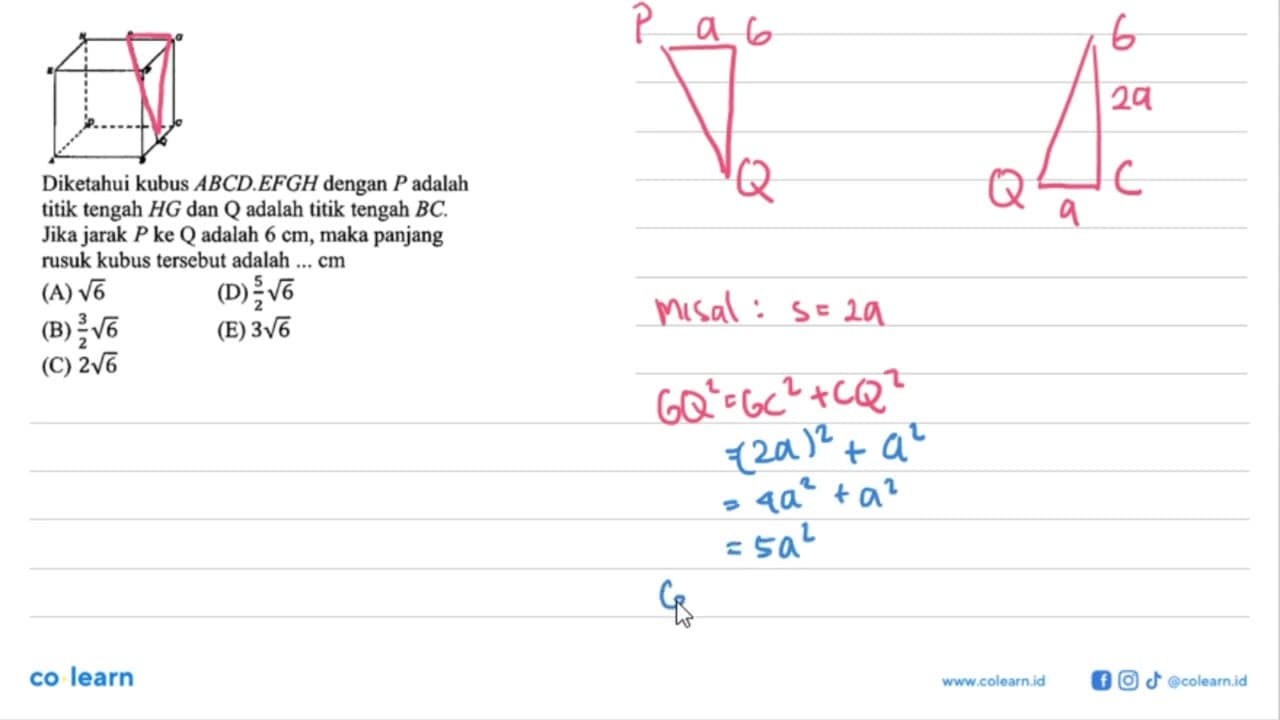 Diketahui kubus ABCD.EFGH dengan P adalah
titik tengah HG dan Q adalah titik tengah BC.
Jika jarak P ke Q adalah 6 cm, maka panjang
rusuk kubus tersebut adalah ... cm
(A) √6
(D) 5/2 √6
(B) 3/2 √6
(E) 3√6
(C) 2√6
P a G
Q
G
2a
Q C
a
misal : s = 2a
GQ² = GC² + CQ²
=(2a)² + a²
= 4a² + a²
= 5a²
G
co learn
www.colearn.id
@colearn.id